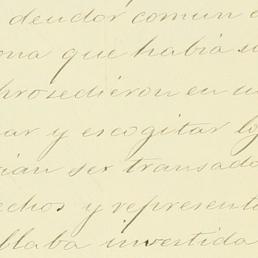 deudor comun
ona que habia su
prosedieron en u
ar y escogitar lo
ian ser transado
echos y represent
llaba investida